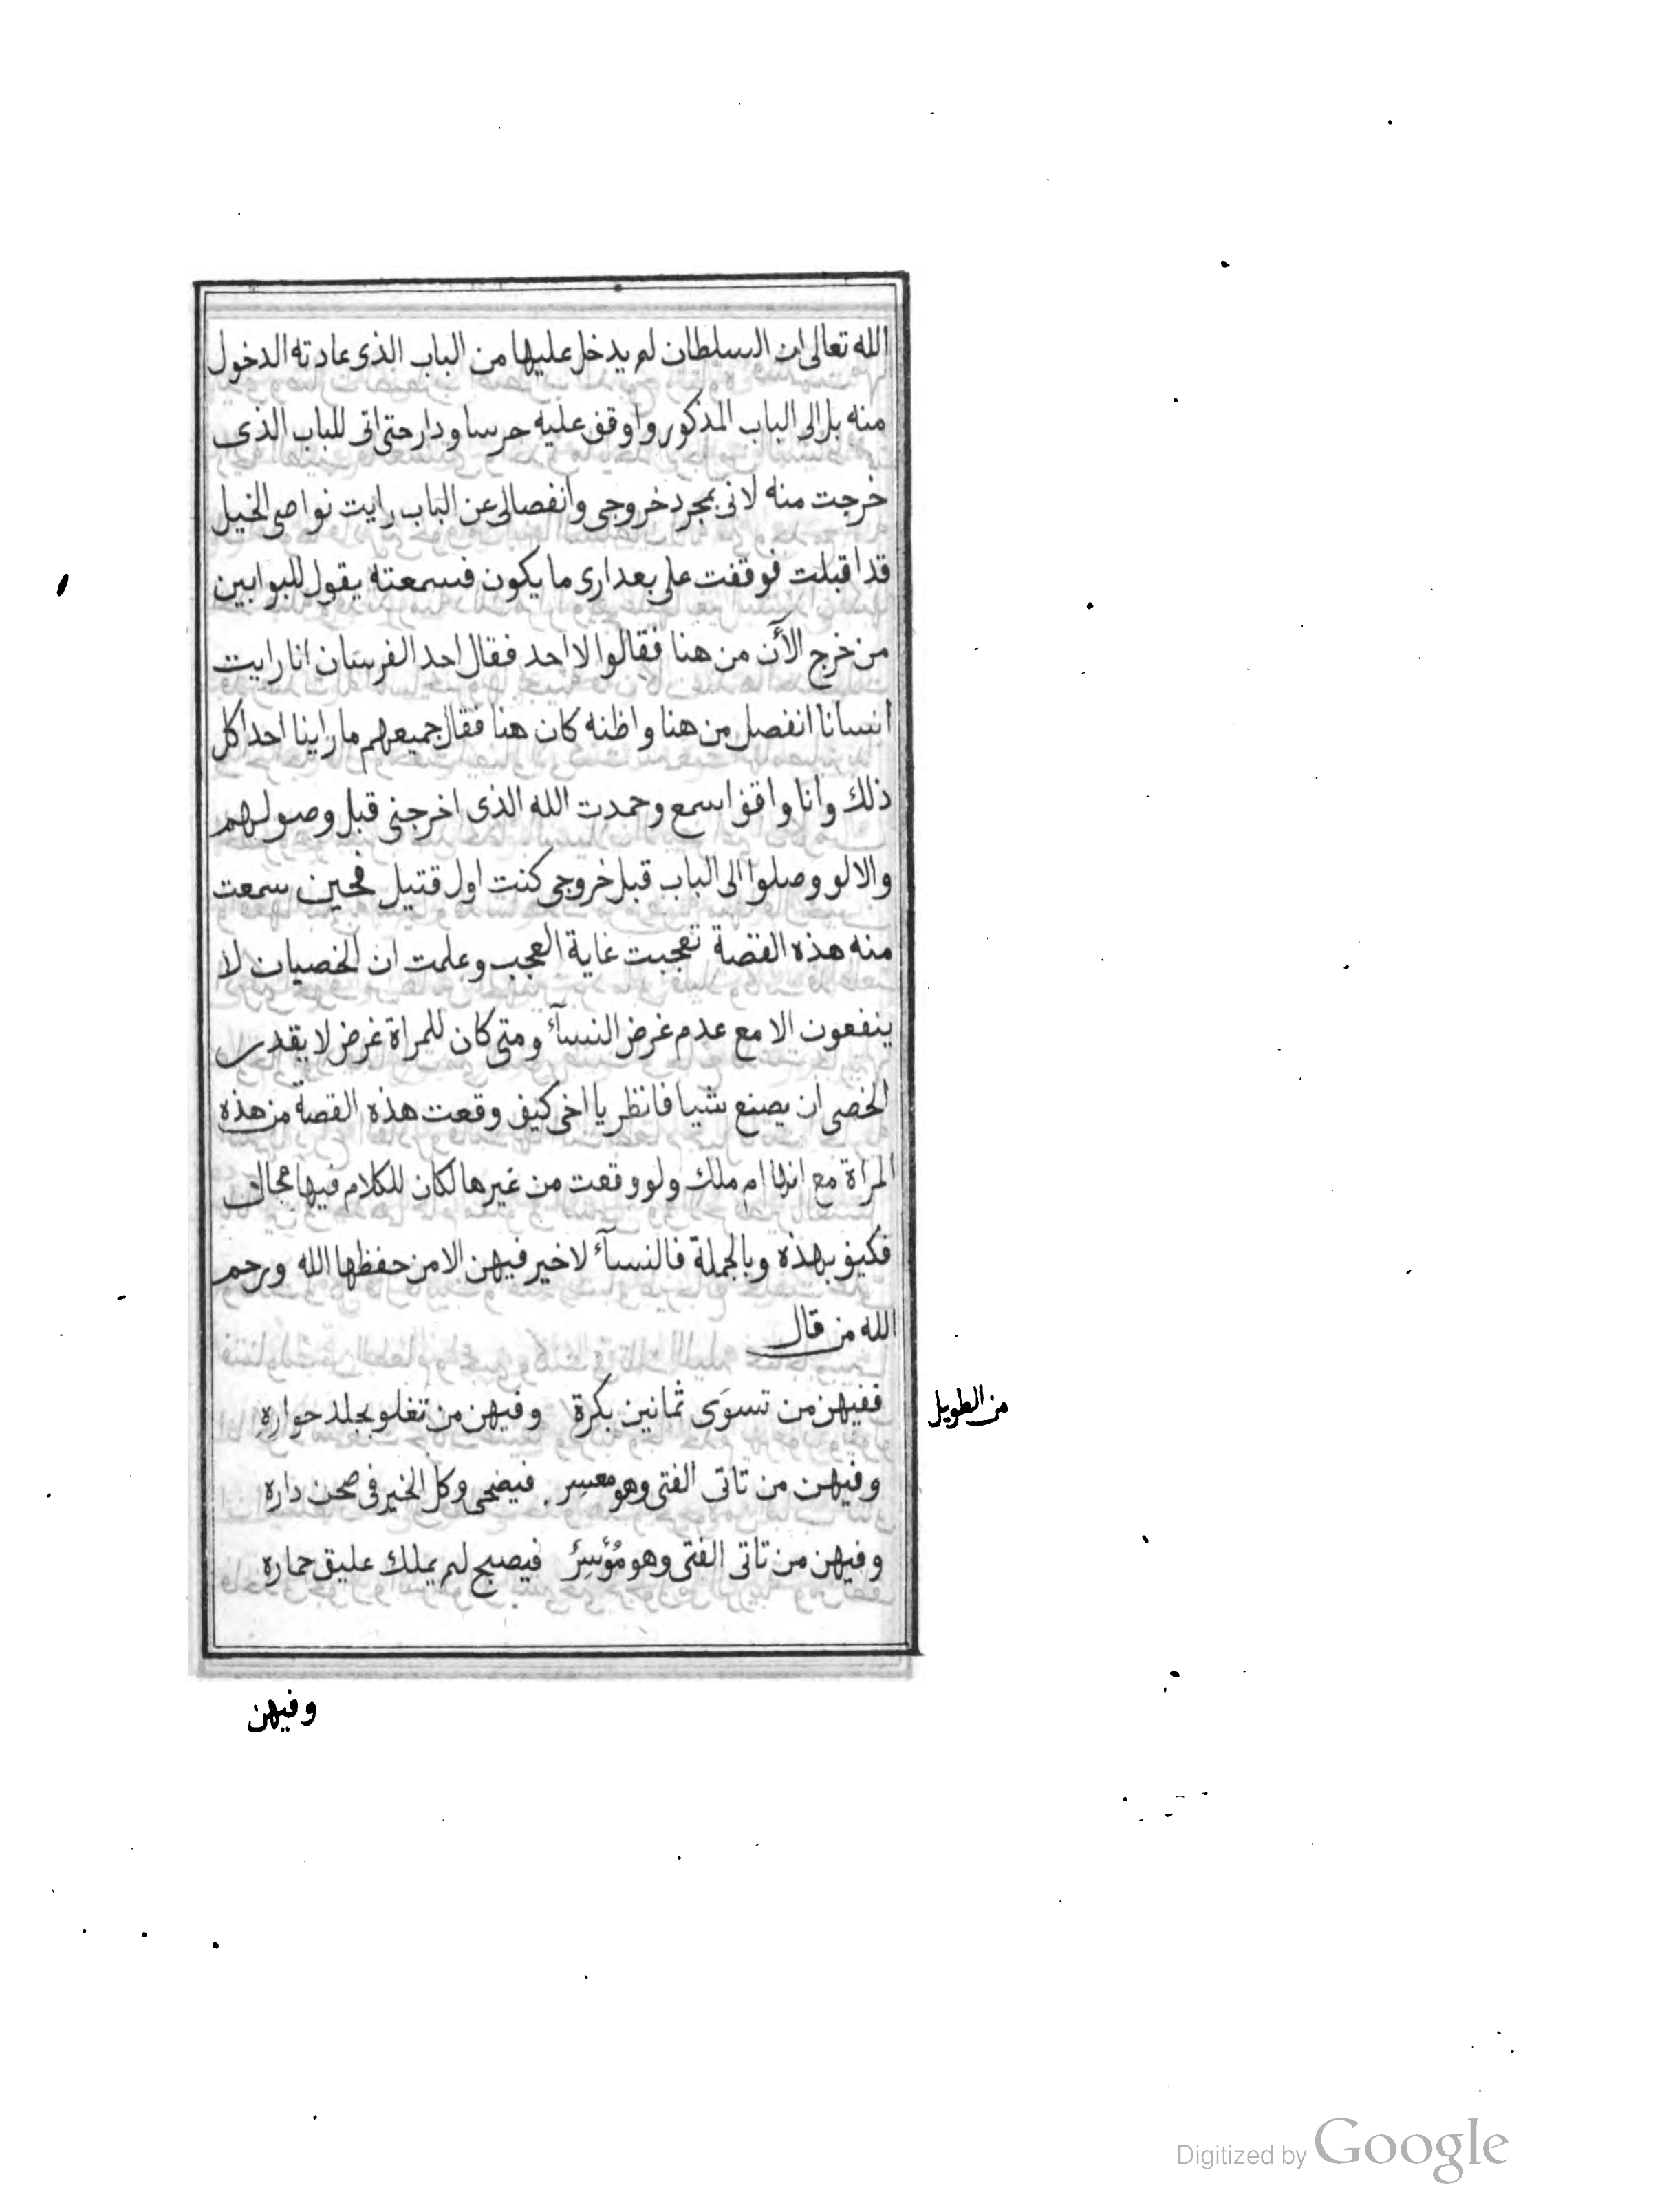 الله تعالى ان السلطان لم يدخل عليها من الباب الذى عادته الدخول
منه بل الى الباب المذكور واوقف عليه حرسا ودار حتى اتى للباب الذى
خرجت منه لانى بمجرد خروجى وانفصالى عن الباب رايت نواصى الخيل
قد اقبلت فوقفت على بعد ارى ما يكون فسمعته يقول للبوابين
من خرج الآن من هنا فقالوا لا احد فقال احد الفرسان انا رايت
انسانا انفصل من هنا واظنه كان هنا فقال جميعهم ما راينا احدا كل
ذلك وانا واقف اسمع وحمدت الله الذى اخرجنى قبل وصولهم
والا لو وصلوا الى الباب قبل خروجى كنت اول قتيل فحين سمعت
منه هذه القصة تعجبت غاية العجب وعلمت ان الخصيان لا
ينفعون الا مع عدم غرض النسآء ومتى كان للمراة غرض لا يقدر
الخصى ان يصنع شيا فانظر يا اخى كيف وقعت هذه القصة من هذه
المراة مع انها ام ملك ولو وقعت من غيرها لكان للكلام فيها مجال
فكيف بهذه وبالجملة فالنسآء لا خير فيهن الا من حفظها الله ورحم
الله من قال
من الطويل
ففيهن من تسوَى ثمانين بكرة وفيهن من تغلو بجلد حوارِهِ
وفيهن من تاتى الفتى وهو معسِر فيضحى وكل الخير فى صحن داره
وفيهن من تاتى الفتى وهو مُؤسِرٌ فيصبح لم يملك عليق حماره
وفيهن
Digitized by Google